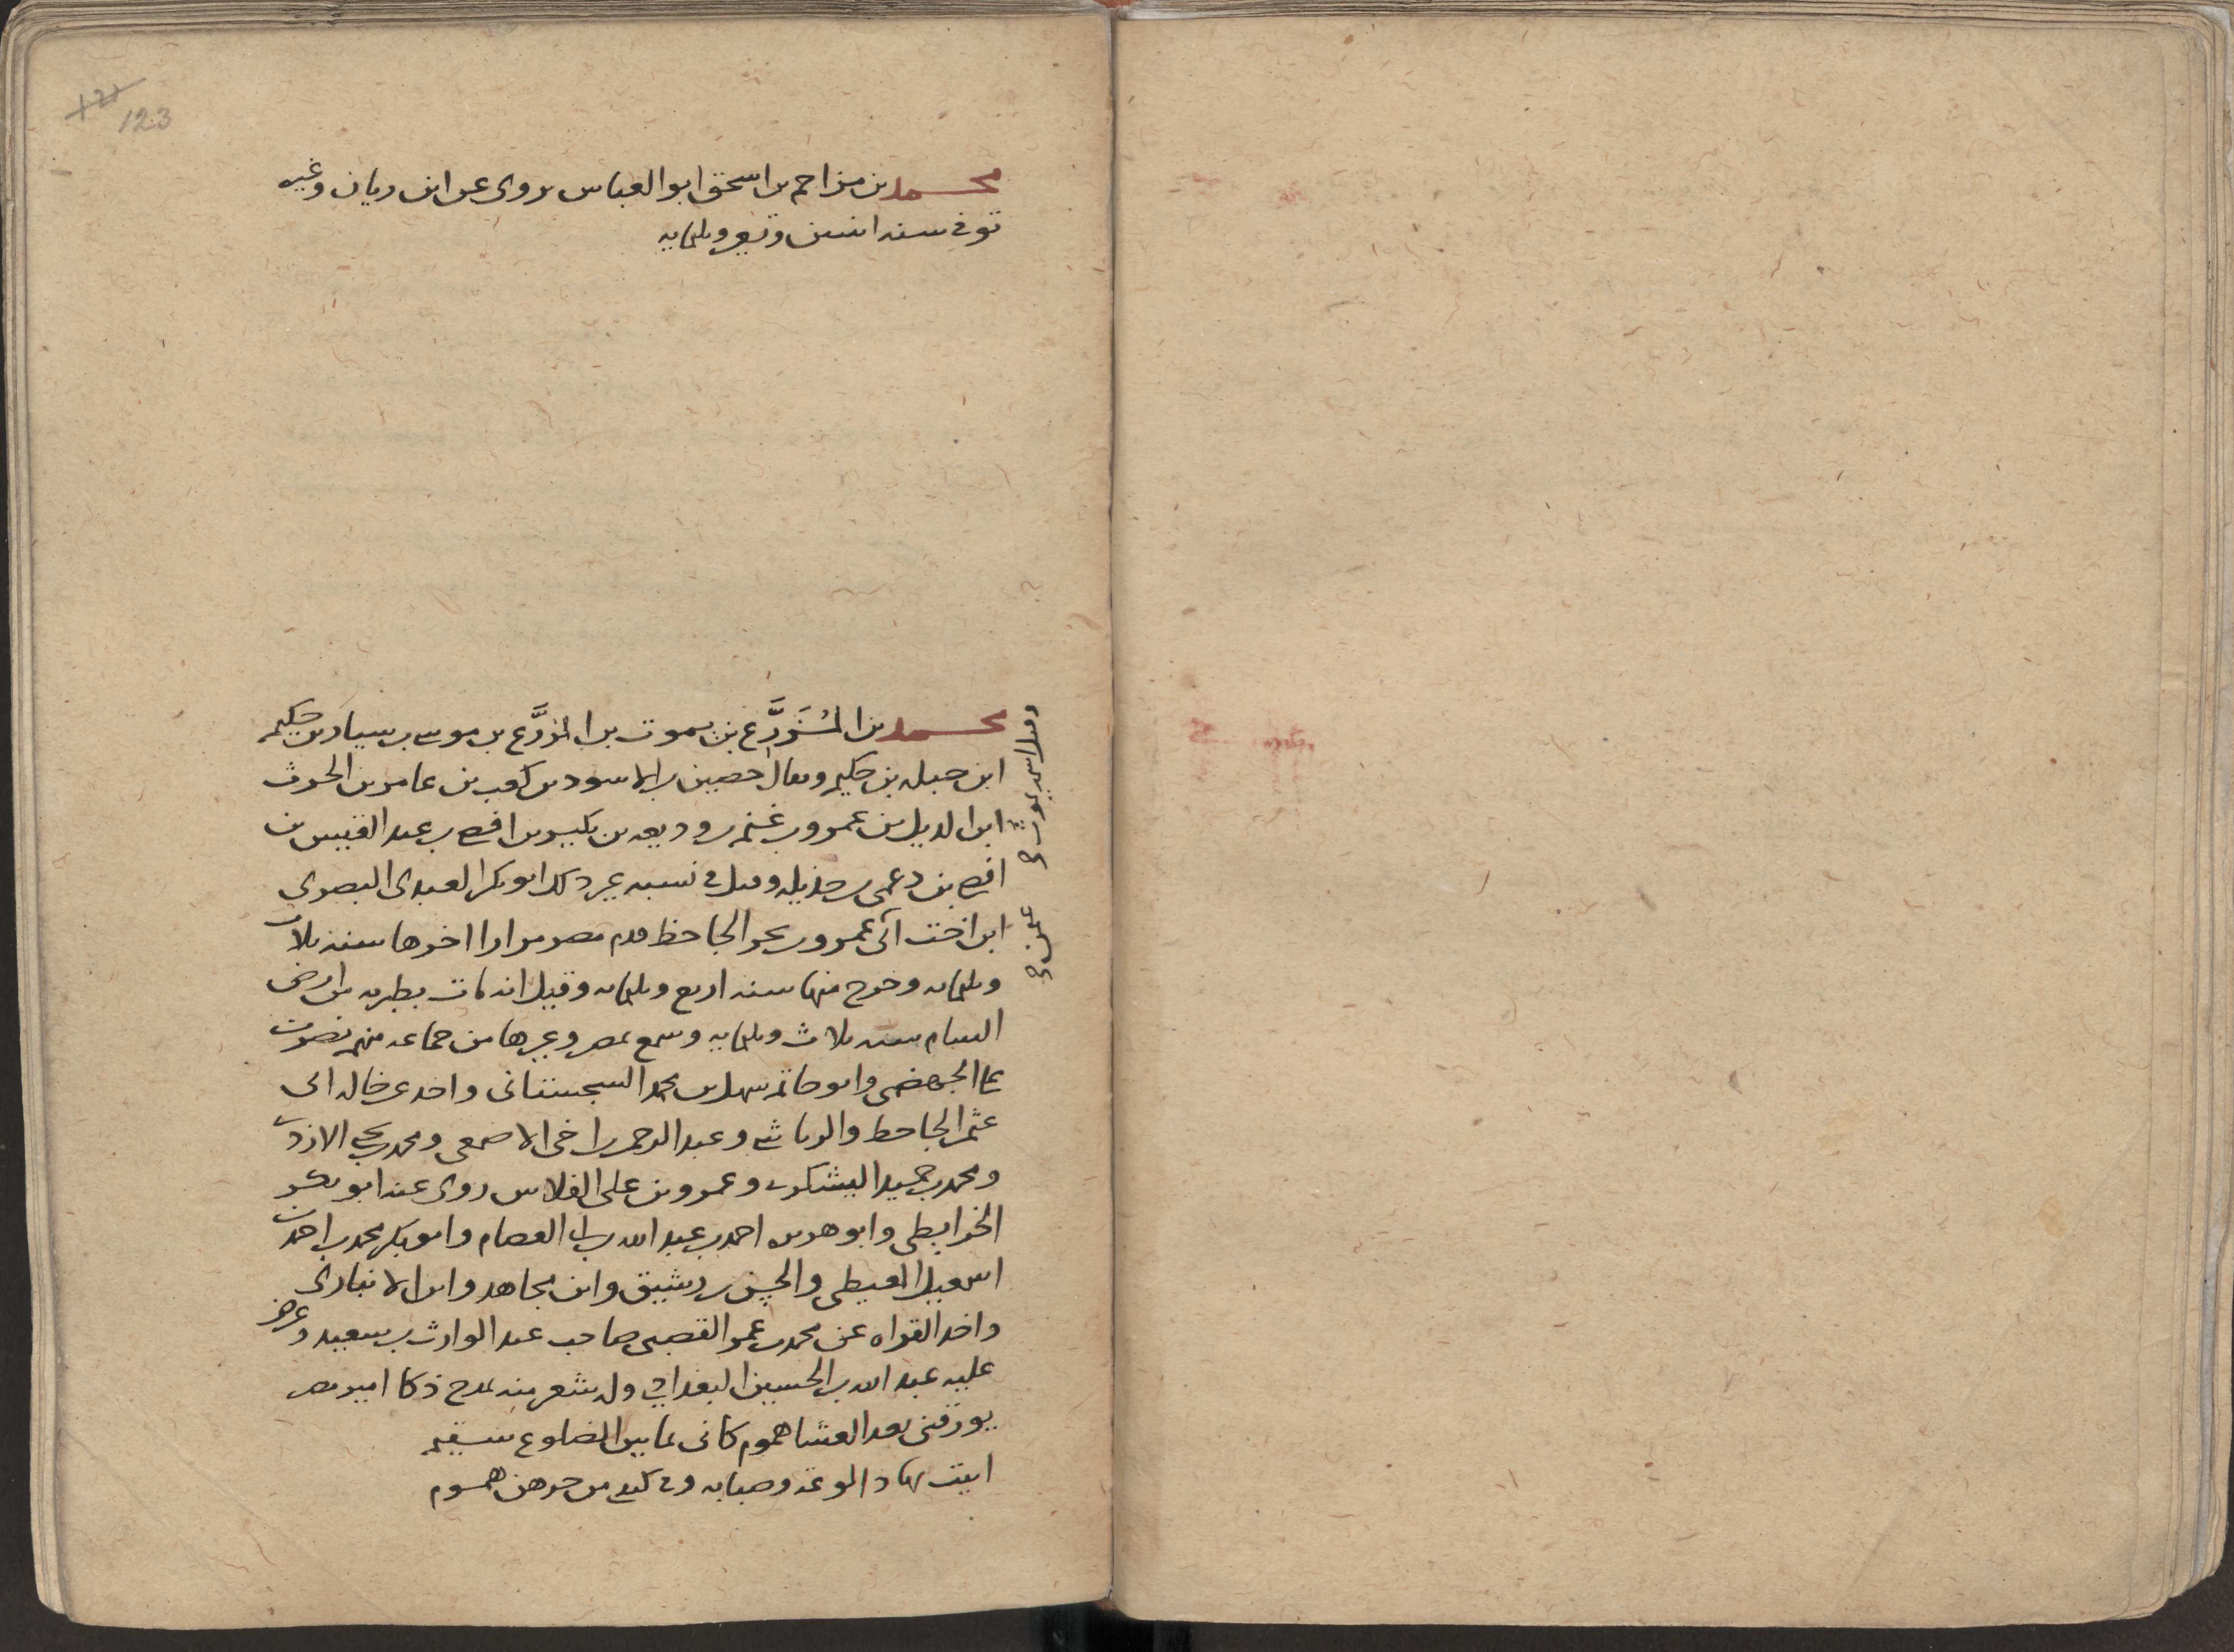 123
محمد بن مزاحم بن اسحق ابو العباس يروى عن ابن ريان وغيره
توفى سنه اثنتين وتسعين وثلثمايه
محمد بن المُزَرَّع بن يموت بن المزرَّع بن موسى بن سيار بن حكيم
ابن جبله بن حكيم ويقال حصين بن الاسود بن كعب بن عامر بن الحرث
ابن الديل بن عمرو بن غنم بن وديعه بن بكير بن افصى بن عبد القيس بن
افصى بن دعمى بن جذيله وقيل فى نسبه غير ذلك ابو بكر العبدى البصرى
ابن اخت ابى عمرو بن بحر الجاحظ قدم مصر مرارا اخرها سنه ثلاث
وثلثمايه وخرج منها سنه اربع وثلثمايه وقيل انه مات بطبريه من ارض
الشام سنه ثلاث وثلثمايه وسمع بمصر وغيرها من جماعه منهم نصر بن
على الجهضمى وابو حاتم سهل بن محمد السجستانى واخذ عن خاله ابى
عثمن الجاحظ والرياشى وعبد الرحمن بن اخى الاصمعى ومحمد بن يحيى الازدى
ومحمد بن حميد اليشكرى وعمرو بن على الفلاس روى عنه ابو بكر
الخرايطى وابو هريره احمد بن عبد الله بن ابى العصام وابو بكر محمد بن احمد بن
اسمعيل المعيطى والحسن بن رشيق وابن مجاهد وابن الانبارى
واخذ القراه عن محمد بن عمر القصبى صاحب عبد الوارث بن سعيد وعرض
عليه عبد الله بن الحسين البغدادى وله شعر منه يمدح ذكا امير مصر
يورقنى بعد العشا هموم كانى لما بين الضلوع سقيم
ابيت بها ذا لوعه وصبابه وفى كبدى من حرهن هموم
وقيل اسمه يموت